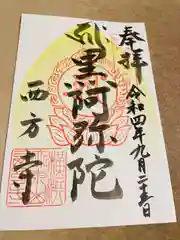 奉拝
令和四年九月二十五日
黒阿弥陀
西方寺